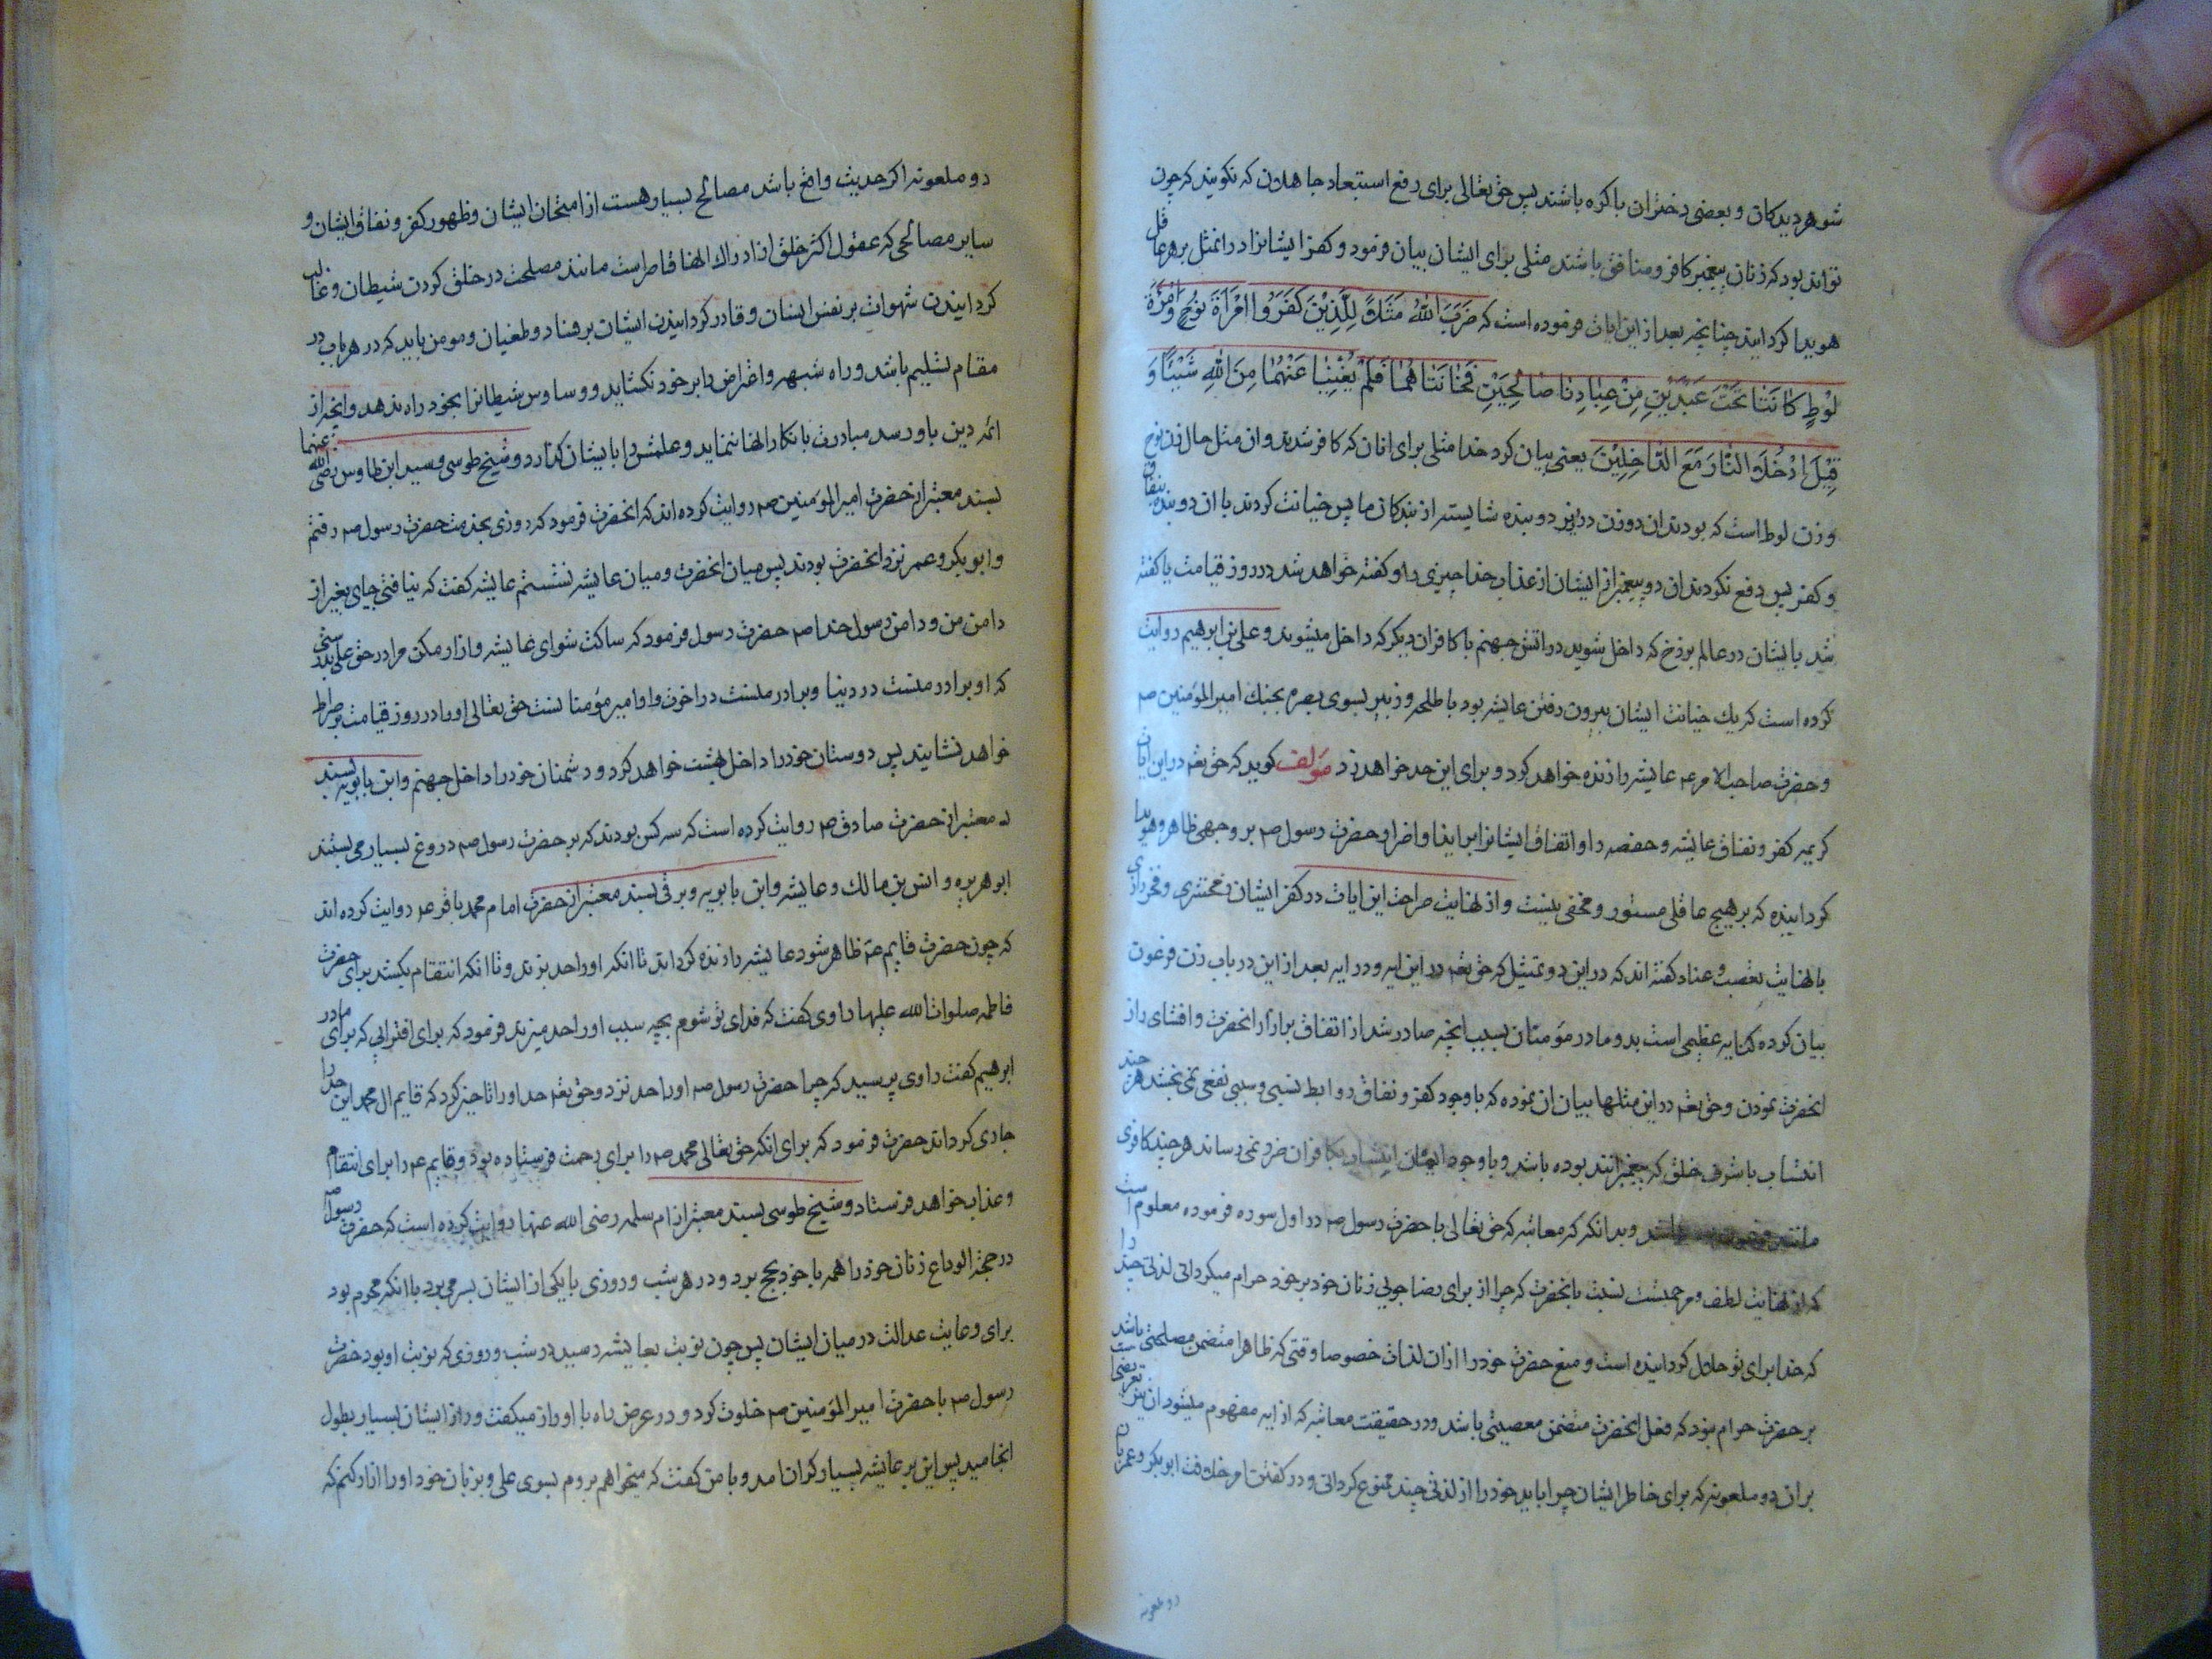 شوهر دیدکان و بعضی دختران باکره باشند پس حق تعالی برای رفع استبعاد جاهلان که نکویند که چون
تواند بود که زنان پیغمبر کافر و منافق باشند مثلی برای ایشان بیان فرمود و کفر ایشانرا در ان مثل بر هر عاقل
هویدا کردانید چنانچه بعد از این ایات فرموده است که ضَرَبَ اللهُ مَثَلاً لِلَّذِیْنَ کَفَرُوا امْرَأَةَ نُوْحٍ وَ امْرَأَةَ
لُوْطٍ کٰانَتٰا تَحْتَ عَبْدَیْنِ مِنْ عِبٰادِنٰا صٰالِحَیْنِ فَخٰانَتٰاهُمٰا فَلَمْ یُغْنِیٰا عَنْهُمٰا مِنَ اللهِ شَیْئًا وَ
قِیْلَ ادْخُلاَ النّٰارَ مَعَ الدّٰاخِلِیْنَ یعنی بیان کرد خدا مثلی برای انان که کافر شدند و ان مثل حال زن نوح
و زن لوط است که بودند ان دو زن در زیر دو بنده شایسته از بندکان ما پس خیانت کردند با ان دو بنده بنفاق
و کفر پس دفع نکردند ان دو پیغمبر از ایشان از عذاب خدا چیزی را و کفته خواهد شد در روز قیامت یا کفته
شد بایشان در عالم برزخ که داخل شوید در اتش جهنم با کافران دیکر که داخل میشوند و علی بن ابرهیم روایت
کرده است که یك خیانت ایشان بیرون رفتن عایشه بود با طلحه و زبیر بسوی بصره بجنك امیرالمؤمنین ص
و حضرت صاحب الامر ع عایشه را زنده خواهد کرد و برای این حد خواهد زد مؤلف کوید که حق تعم در این ایات
کریمه کفر و نفاق عایشه و حفصه را و اتفاق ایشانرا بر ایذا و اضرار حضرت رسول ص بر وجهی ظاهر و هویدا
کردانیده که بر هیچ عاقلی مستور و مخفی نیست و از نهایت صراحت این ایات در کفر ایشان زمخشری و فخر رازی
با نهایت تعصب و عناد کفته اند که در این دو تمثیل که حق تعم در این ایه و در ایه بعد از این در باب زن فرعون
بیان کرده کنایه عظیمی است بدو مادر مؤمنان بسبب انچه صادر شد از اتفاق بر ازار انحضرت و افشای راز
انحضرت نمودن و حق تعم در این مثلها بیان ان نموده که با وجود کفر و نفاق روابط نسبی و سببی نفعی نمی بخشد هر چند
انتساب باشرف خلق که پیغمبرانند بوده باشد و با وجود ایمان انتساب بکافران ضرر نمی رساند هر چند کافری
مانند فرعون باشد و بدانکه که معاتبه که حق تعالی با حضرت رسول ص در اول سوره فرموده معلوم است
که از نهایت لطف و مرحمتست نسبت بانحضرت که چرا از برای رضا جویی زنان خود بر خود حرام میکردانی لذتی چند را
که خدا برای تو حلال کردانیده است و منع حضرت خود را از ان لذات خصوصا وقتی که ظاهرا متضمن مصلحتی باشد
بر حضرت حرام نبود که فعل انحضرت متضمن معصیتی باشد و در حقیقت معاتبه که از ایه مفهوم میشود ان نیز تعریضیست
بر ان دو ملعونه که برای خاطر ایشان چرا باید خود را از لذتی چند ممنوع کردانی و در کفتن امر خلافت ابوبکر و عمر بان
دو ملعونه
دو ملعونه اکر حدیث واقع باشد مصالح بسیار هست از امتحان ایشان و ظهور کفر و نفاق ایشان و
سایر مصالحی که عقول اکثر خلق از ادراك انها قاصر است مانند مصلحت در خلق کردن شیطان و غالب
کردانیدن شهوات بر نفس انسان و قادر کردانیدن ایشان بر فساد و طغیان و مومن باید که در هر باب در
مقام تسلیم باشد و راه شبهه و اعتراض را بر خود نکشاید و وساوس شیطانرا بخود راه ندهد و انچه از
ائمه دین باو رسد مبادرت بانکار انها ننماید و علمش را بایشان کذارد و شیخ طوسی و سید ابن طاوس رضی الله عنهما
بسند معتبر از حضرت امیرالمؤمنین ص روایت کرده اند که انحضرت فرمود که روزی بخدمت حضرت رسول ص رفتم
و ابوبکر و عمر نزد انحضرت بودند پس میان انحضرت و میان عایشه نشستم عایشه کفت که نیافتی جای بغیر از
دامن من و دامن رسول خدا ص حضرت رسول فرمود که ساکت شو ای عایشه و ازار مکن مرا در حق علی بدرستی
که او برادر منست در دنیا و برادر منست در اخرت و او امیر مؤمنا نست حق تعالی او را در روز قیامت بر صراط
خواهد نشانید پس دوستان خود را داخل بهشت خواهد کرد و دشمنان خود را داخل جهنم و ابن بابویه بسند
معتبر از حضرت صادق ص روایت کرده است که سه کس بودند که بر حضرت رسول ص دروغ بسیار می بستند
ابوهریره و انس بن مالك و عایشه و ابن بابویه و برقی بسند معتبر از حضرت امام محمد باقر ع روایت کرده اند
که چون حضرت قایم ع ظاهر شود عایشه را زنده کرداند تا انکه او را حد بزند و تا انکه انتقام بکشد برای حضرت
فاطمه صلوات الله علیها راوی کفت که فدای تو شوم بچه سبب او را حد میزند فرمود که برای افترایی که برای مادر
ابرهیم کفت راوی پرسید که چرا حضرت رسول ص او را حد نزد و حق تعم حد او را تاخیر کرد که قایم ال محمد این حد را
جاری کرداند حضرت فرمود که برای انکه حق تعالی محمد ص را برای رحمت فرستاده بود و قایم ع را برای انتقام
و عذاب خواهد فرستاد و شیخ طوسی بسند معتبر از ام سلمه رضی الله عنها روایت کرده است که حضرت رسول ص
در حجة الوداع زنان خود را همه با خود بحج برد و در هر شب و روزی با یکی از ایشان بسر می برد با انکه محرم بود
برای رعایت عدالت در میان ایشان پس چون نوبت بعایشه رسید در شب و روزی که نوبت او بود حضرت
رسول ص با حضرت امیرالمؤمنین ص خلوت کرد و در عرض راه با او راز میکفت و راز ایشان بسیار بطول
انجامید پس این بر عایشه بسیار کران امد و با من کفت که میخواهم بروم بسوی علی و بزبان خود او را ازار کنم که